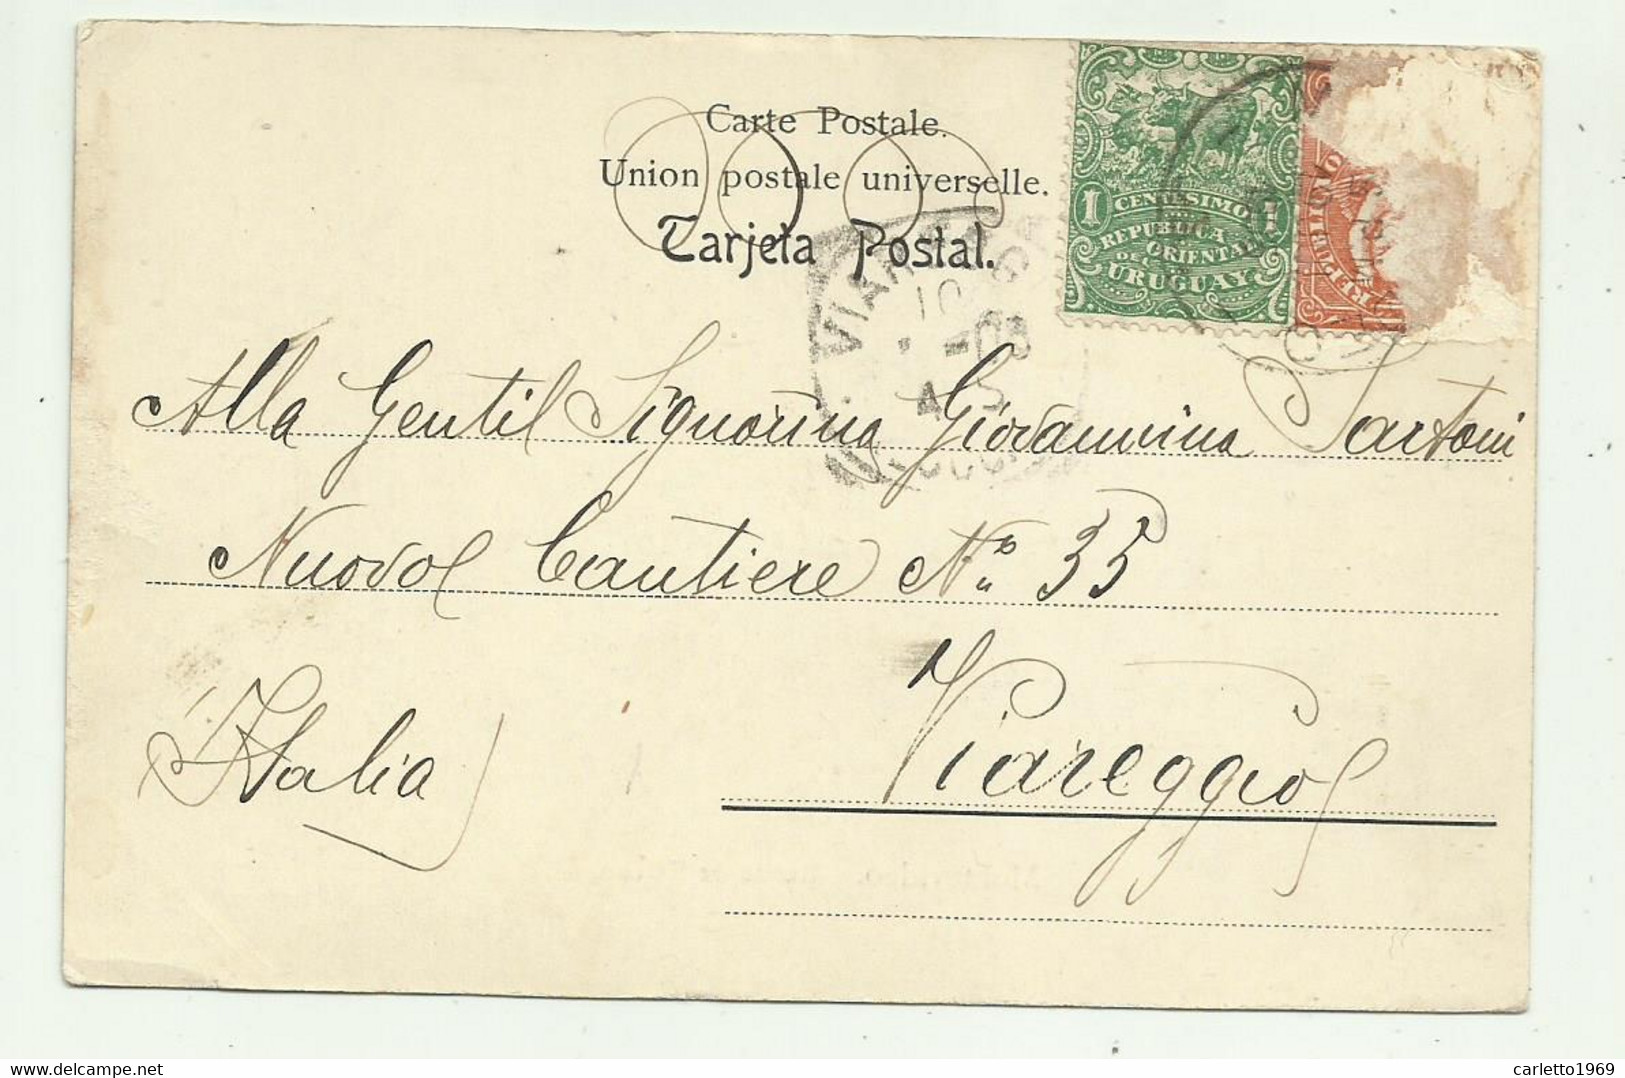 Carte Postale.
Union postale universelle.
Tarjeta Postal.
1 CENTESIMO 1
REPUBLICA
ORIENTAL
DEL
URUGUAY
VIAREGGIO
10
4 5
Alla Gentil Signorina Giovannina Sartoni
Nuovo Cantiere No. 35
Viareggio
Italia
carletto1969